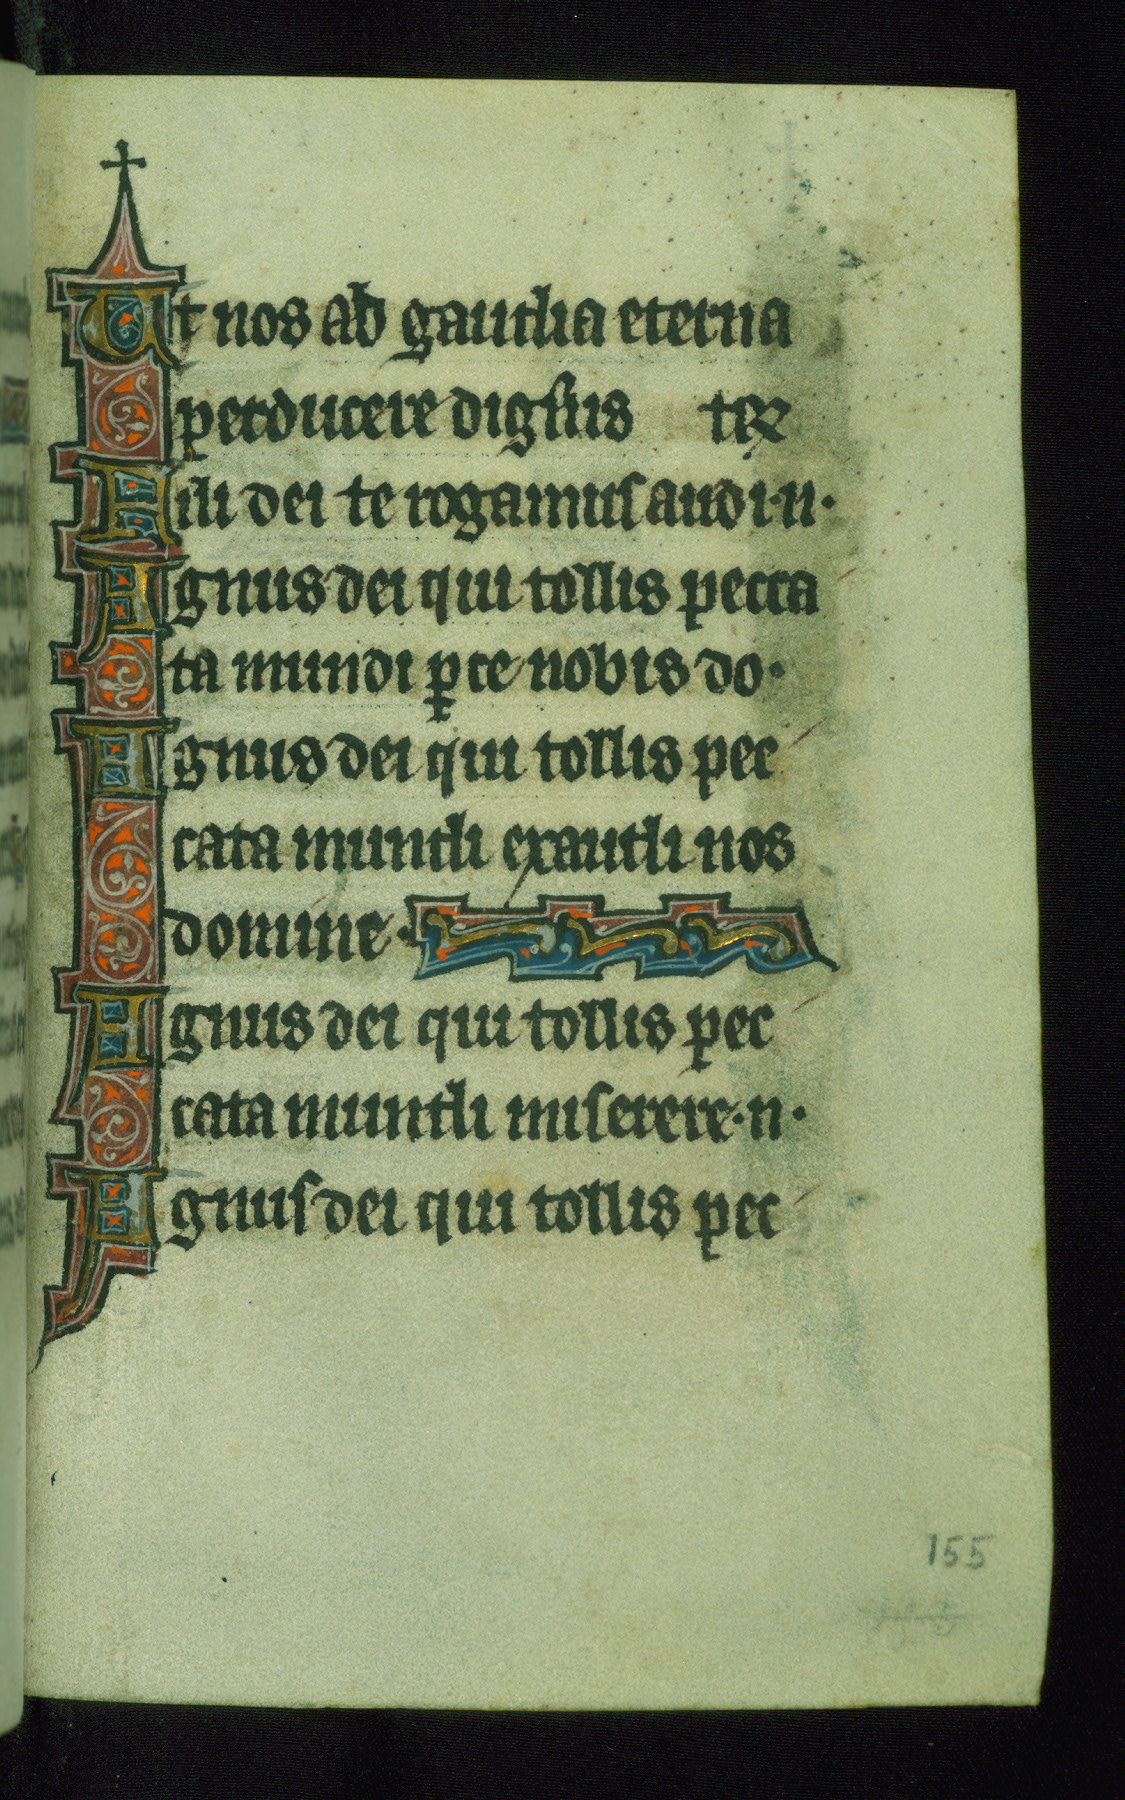 Ut nos ad gaudia eterna
perducere dignis ter
Fili dei te rogamus audi·n·
Agnus dei qui tollis pecca
ta mundi pce nobis do·
Agnus dei qui tollis pec
cata mundi exaudi nos
domine·
Agnus dei qui tollis pec
cata mundi miserere·n·
Agnus dei qui tollis pec
155